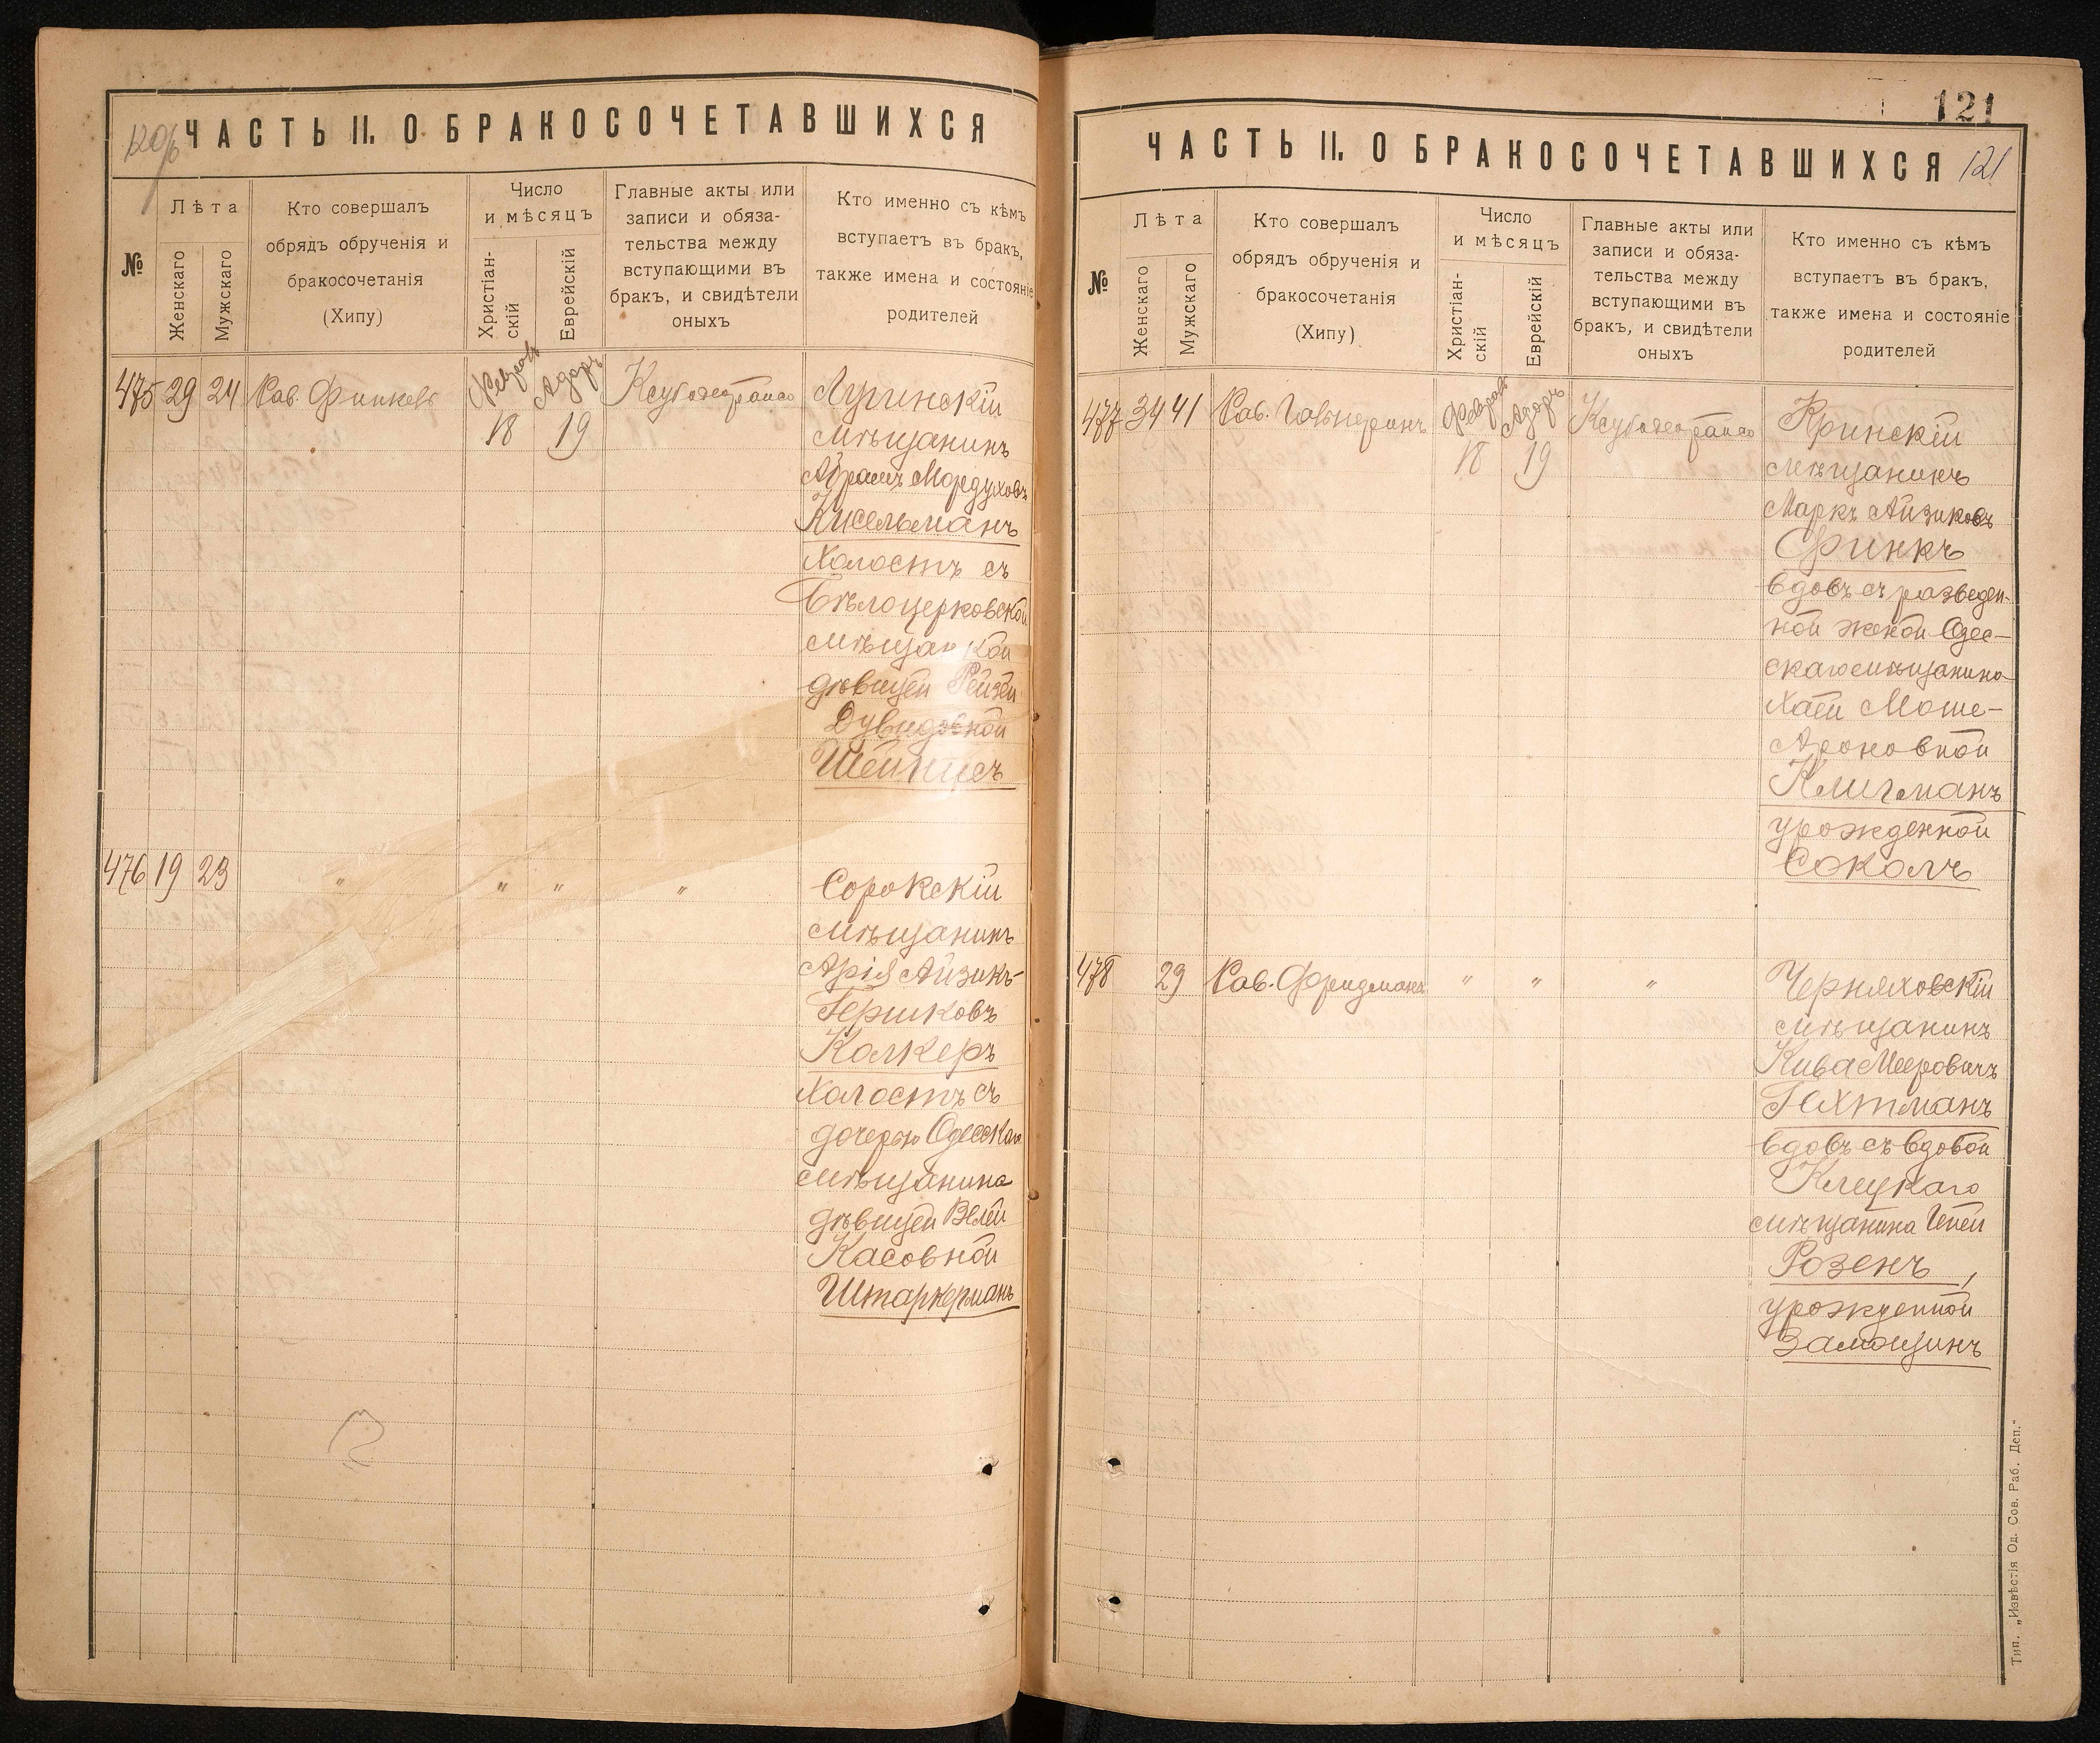 120 об
ЧАСТЬ II. О БРАКОСОЧЕТАВШИХСЯ
№
Лѣта
Женскаго
Мужскаго
Кто совершалъ
обрядъ обрученія и
бракосочетанія
(Хипу)
Число
и мѣсяцъ
Христіан-
скій
Еврейскій
Главные акты или
записи и обяза-
тельства между
вступающими въ
бракъ, и свидѣтели
оныхъ
Кто именно съ кѣмъ
вступаетъ въ бракъ,
также имена и состояніе
родителей
475 29 24 Рав. Финкель Февраль 18 Адаръ 19
Лугинскій
мѣщанинъ
Абрамъ Мордуховъ
Кисельманъ
холостъ съ
Бѣлоцерковской
мѣщанкой
дѣвицей Рейзей
Дувидовной
Шейнцсъ
476 19 23 " " " "
Сорокскій
мѣщанинъ
Арія Айзикъ-
Гершковъ
Колкеръ
холостъ съ
дочерью Одесскаго
мѣщанина
дѣвицей Велей
Касовной
Штаркерманъ
121
ЧАСТЬ II. О БРАКОСОЧЕТАВШИХСЯ 121
№
Лѣта
Женскаго
Мужскаго
Кто совершалъ
обрядъ обрученія и
бракосочетанія
(Хипу)
Число
и мѣсяцъ
Христіан-
скій
Еврейскій
Главные акты или
записи и обяза-
тельства между
вступающими въ
бракъ, и свидѣтели
оныхъ
Кто именно съ кѣмъ
вступаетъ въ бракъ,
также имена и состояніе
родителей
477 34 41 Рав. Гальперинъ Февраль 18 Адаръ 19
Кринскій
мѣщанинъ
Маркъ Айзиковъ
Финкъ
вдовъ съ разведен-
ной женой Одес-
скаго мѣщанина
Хаей Моше-
Ароновной
Клигманъ
урожденной
Соколъ
478 29 Рав. Фридманъ " " "
Черняховскій
мѣщанинъ
Кива Мееровичъ
Гехтманъ
вдовъ съ вдовой
Клецкаго
мѣщанина Цепей
Розенъ,
урожденной
Замощинъ
Тип. „Извѣстія Од. Сов. Раб. Деп."